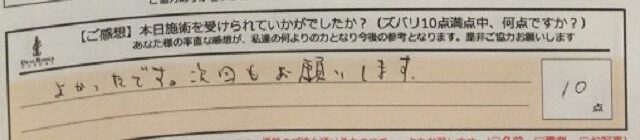 【ご感想】本日施術を受けられていかがでしたか？（ズバリ10点満点中、何点ですか？）
あなた様の率直な感想が、私達の何よりの力となり今後の参考となります。是非ご協力お願いします
よかったです。次回もお願いします。
10
点